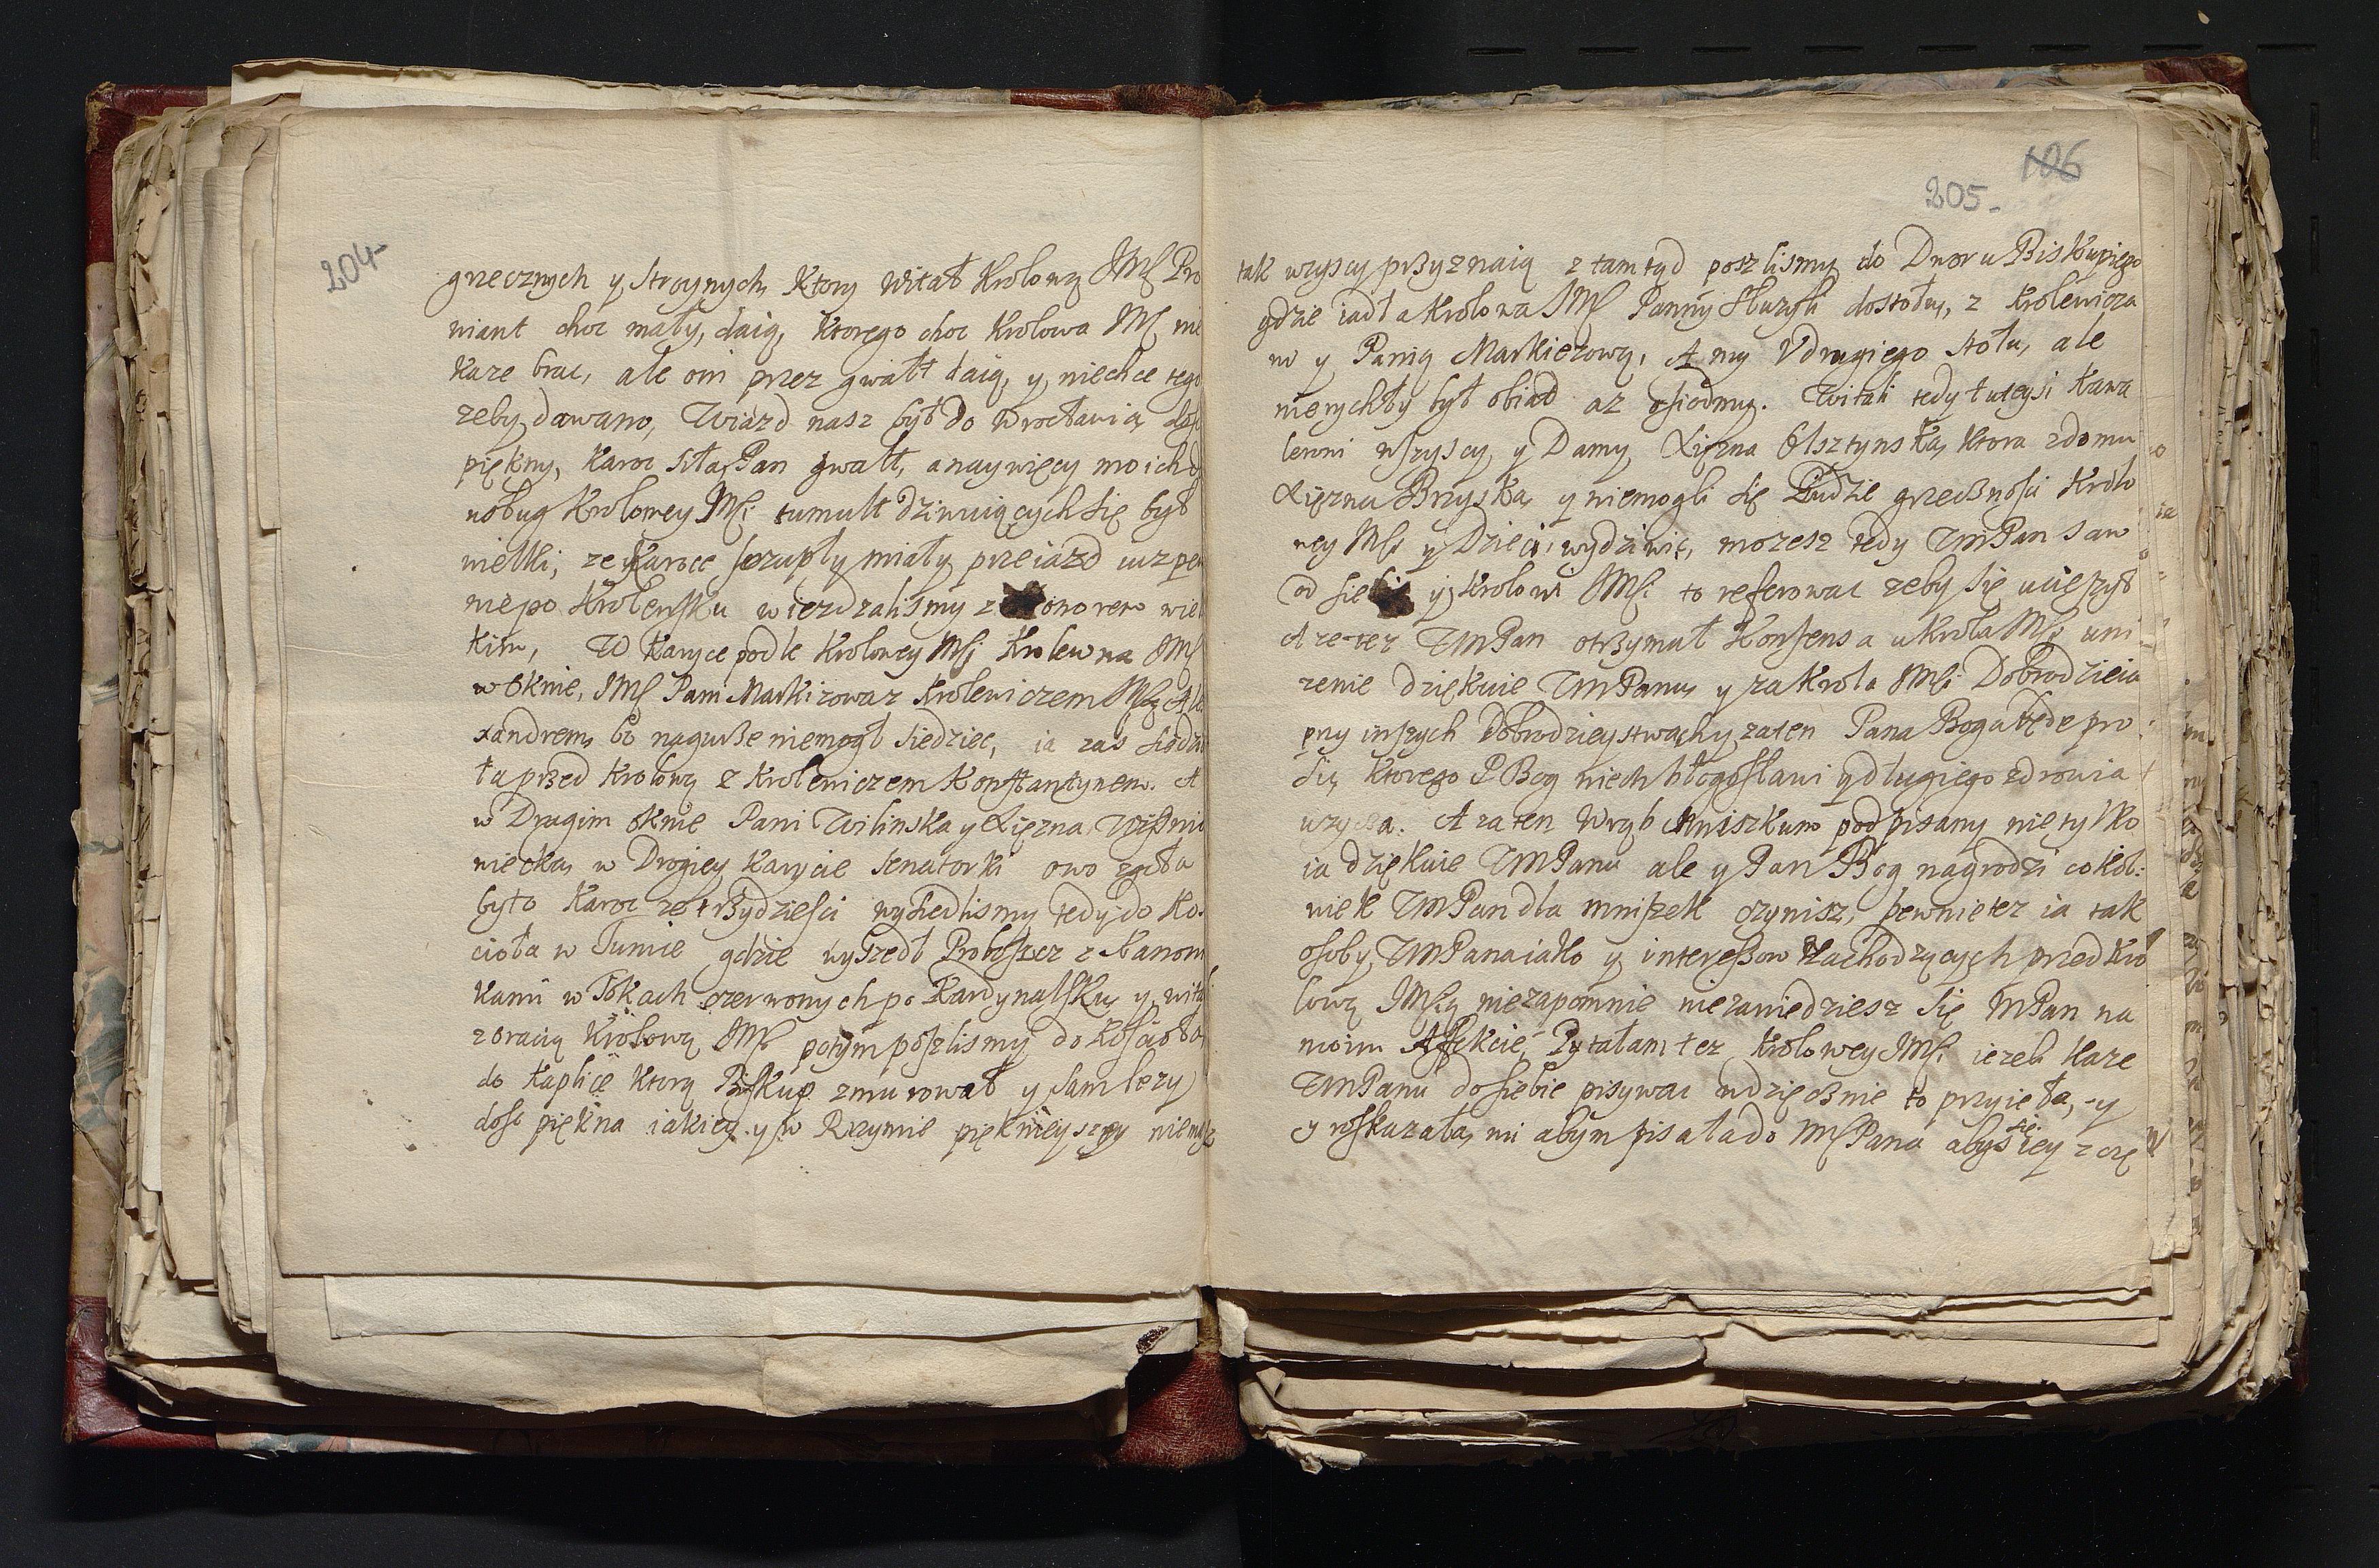 204-
grzecznych y stroynych, Ktory witał Krolową JMś Pro
niant choc mały, daią, ktorego choc Krolowa JMś nie
kaze brac, ale oni przez gwałt daią, y niechce tego
zeby dawano, Wiazd nasz był do Wrocławia dość
piękny, karoc siła, Pan gwałt, a naywięcy moich
uobug Krolowey JMśi tumult dziwuiących się był
wielki, ze Karoce szczupły miały przeiazd
nie po Krolewsku wiezdzalismy z onorem wiel
kim, W Karyce podle Krolowey Mśi Krolewna JMś
w oknie, JMś Pani Markizowa z Krolewiczem JMśą Ale
xandrem, bo naguße niemogł siedziec, ia zas siedzia
ła przed Krolową z Krolewiczem Konstantynem. A
w Drugim oknie Pani Wilinska y Xięzna Wiśnio
wiecka, w Drogiey Karycie Senatorki owo zgoła
było Karoc ze trzydziesci wysiedlismy tedy do Ko.
cioła w Tumie gdzie wyszedł Proboszcz z Kanoni
kami w Tokach czerwonych po Kardynalsku y witał
z oracią Krolową JMś potym poszlismy do Kosciołа
do Kaplice ktorą Biskup zmurował y sam lezy
dosc piękna iakiey y w Rzymie pięknieyszey niemasz
106
205-
tak wszyscy przyznaią z tamtyd poszlismy do Dworu Biskupiego
gdzie iadła Krolowa JMś Panny słuzyli dostołu, z Krolewicza
m y Panią Markiezową, A my Vdrugiego stołu, ale
nierychły był obiad az osiodmy. Witali tedy tuteysi Kawa
lerowi wszyscy y Damy, Xięzna Olsztynska, ktora zdomu
Xięzna Brzyska, y niemogli się Ludzie grzecznosci Krolo
wey Mśi y Dzieci wydziwic, mozesz tedy WmPan sam
od siebie y Krolowi JMśi to referowac zeby się ucieszył
A ze tez WmPan otrzymał Konsensa u Krola Mśi uni
zenie dziękuie WmPanu, y za Krola JMśi Dobrodzieia
przy inszych Dobrodzieystwach y zaten Pana Boga będę pro
sią, ktorego P Bog niech błogosławi y długiego zdrowia
uzycza. A zaten Wryb Mniszkum podpisany nietylko
ia dziękuie WmPanu ale y Pan Bog nagrodzi cokol:
wiek WmPan dla mniszek czynisz, pewnie tez ia tak
osoby WmPana iako y interessow zachodzących przed Kro
lową JMśą niezapomnie niezawiedziesz się WPan na
moim Affekcie, Pytałam tez Krolowey JMśi iezeli kaze
WmPanu dosiebie pisywac wdzięcznie to przyięła, y
y roskazała, mi abym pisała do WMśPana abyś się iey z czę